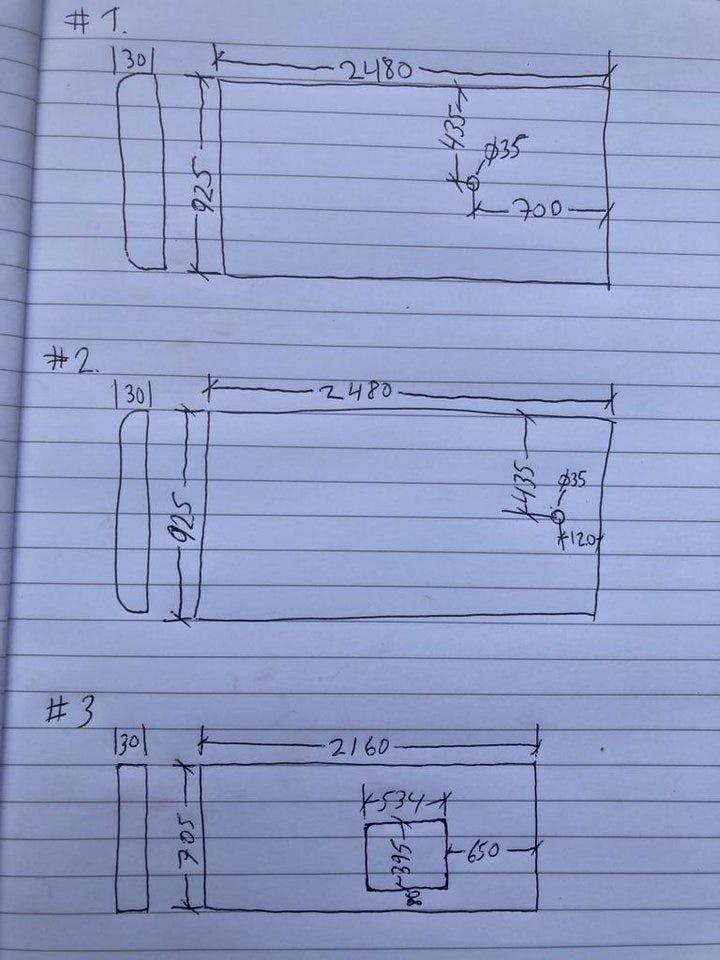 # 1.
|30|
2480
925
435
ϕ35
700
#2.
|30|
2480
925
435
ϕ35
120
#3
|30|
2160
705
534
395
650
80